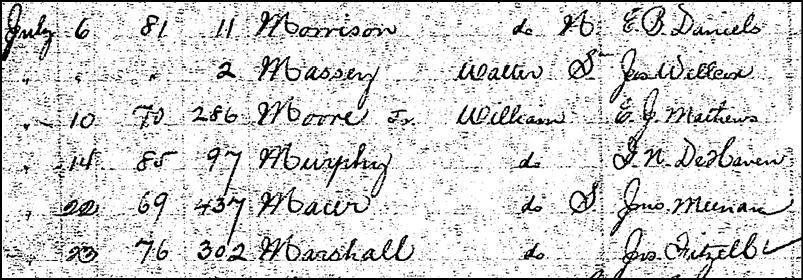 July 6 81 11 Morrison do N E. P. Daniels
" " " 2 Massey Walter S Jas Willcox
" 10 70 286 Moore Jr. William E. J. Mathews
" 14 85 97 Murphy do J. N. DeHaven
" 22 69 437 Maier do S Jno. Meenan
" 23 76 302 Marshall do Jas. Fitzell